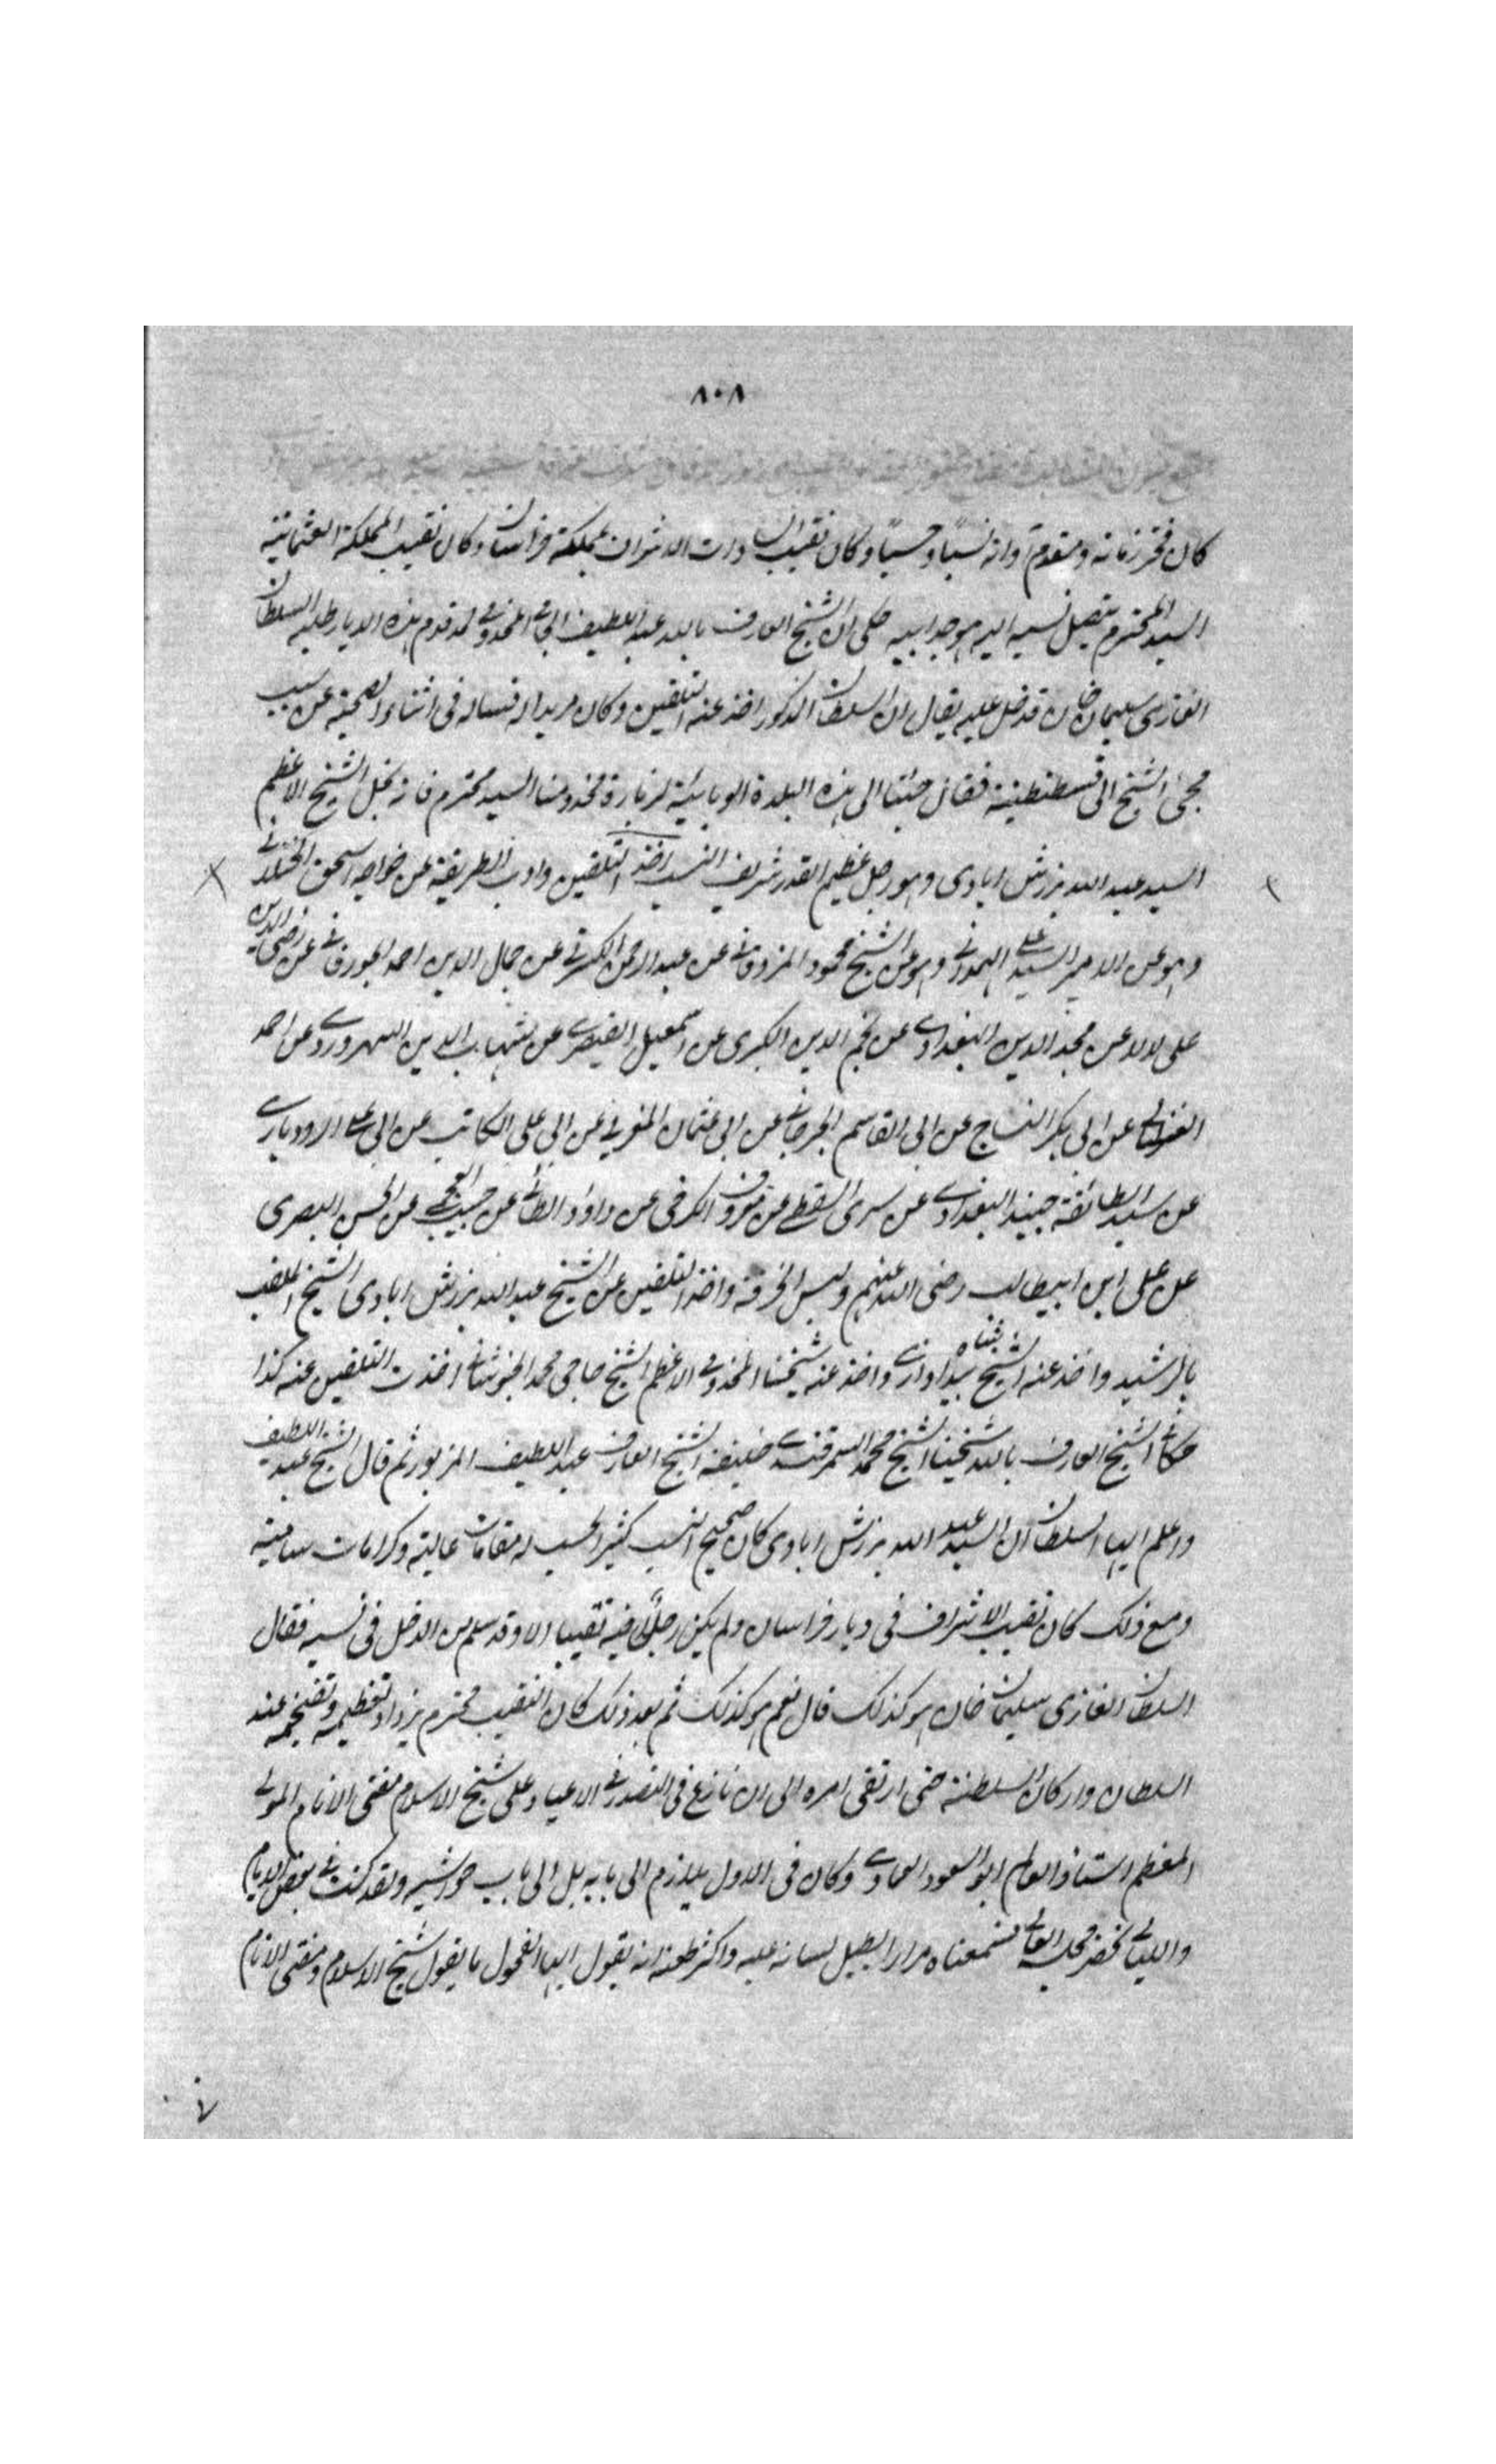 ٨٠٨
كان فخر زمانه ومقدم اوانه نسبا وحسبا وكان نقيب السادات الاشراف بمملكة خراسان وكان نقيب المملكة العثمانية
السيد المحترم يتصل نسبه اليه هو جد ابيه حكى ان الشيخ العارف بالله عبد اللطيف الجامى المخدومى لما قدم هذه الديار طلبه السلطان
الغازى سليمان خان فدخل عليه يقال ان السلطان المذكور اخذ عنه التلقين وكان مريدا له فساله فى اثناء الصحبة عن سبب
مجئ الشيخ الى قسطنطنية فقال جئنا الى هذه البلدة الوبائية لزيارة مخدومنا السيد محترم فانه نجل الشيخ الاعظم
السيد عبد الله برزش ابادى وهو رجل عظيم القدر شريف النسب اخذ التلقين واداب الطريقة عن خواجه اسحق الختلانى
وهو عن الامير السيد على الهمدانى وهو عن الشيخ محمود المزدقانى عن عبد الرحمن الكسرقى عن جمال الدين احمد الجورفانى عن رضى الدين
على لالا عن مجد الدين البغدادى عن نجم الدين الكبرى عن اسمعيل القيصرى عن شهاب الدين السهروردى عن احمد
الغزالى عن ابى بكر النساج عن ابى القاسم الجرجانى عن ابى عثمان المغربى عن ابى على الكاتب عن ابى على الرودبارى
عن سيد الطائفة جنيد البغدادى عن سرى السقطى عن معروف الكرخى عن داود الطائى عن حبيب العجمى عن الحسن البصرى
عن على ابن ابيطالب رضى الله عنهم ولبس الخرقة واخذ التلقين عن الشيخ عبد الله برزش ابادى الشيخ الملقب
بالرشيد واخذ عنه الشيخ شاه بيداوازى واخذ عنه شيخنا المخدومى الاعظم الشيخ حاجى محمد الخبوشانى اخذت التلقين عنه كذا
حكاه الشيخ العارف بالله شيخنا الشيخ محمد السمرقندى خليفة الشيخ العارف عبد اللطيف المزبور ثم قال الشيخ عبد اللطيف
واعلم ايها السلطان ان السيد عبد الله برزش ابادى كان صحيح النسب كثير الحسب له مقامات عالية وكرامات سامية
ومع ذلك كان نقيب الاشراف فى ديار خراسان ولم يكن رجل فيه نقيبا الا وقد سلم من الدخل فى نسبه فقال
السلطان الغازى سليمان خان هو كذلك قال نعم هو كذلك ثم بعد ذلك كان النقيب محترم يزداد تعظيمه وتفخيمه عند
السلطان واركان السلطنة حتى ارتقى امره الى ان نازع فى التصدر فى الاعياد على شيخ الاسلام مفتى الانام المولى
المعظم استاذ العالم ابو السعود العمادى وكان فى الاول يلازم الى بابه بل الى باب حواشيه ولقد كنت فى بعض الايام
والليالى نحضر مجلسه العالى فسمعناه مرارا يطيل لسانه عليه واكثر طعنه انه يقول ايها الفحول ما يقول شيخ الاسلام ومفتى الانام